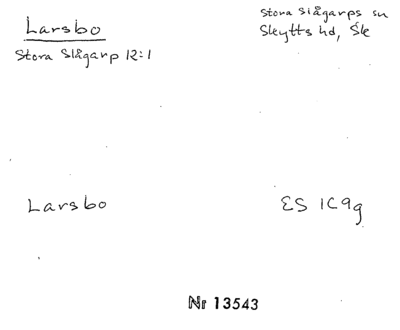 Larsbo
Stora Slågarp 12:1
Stora Slågarps sn
Skytts hd, Sk
Larsbo
ES 1C9g
Nr 13543